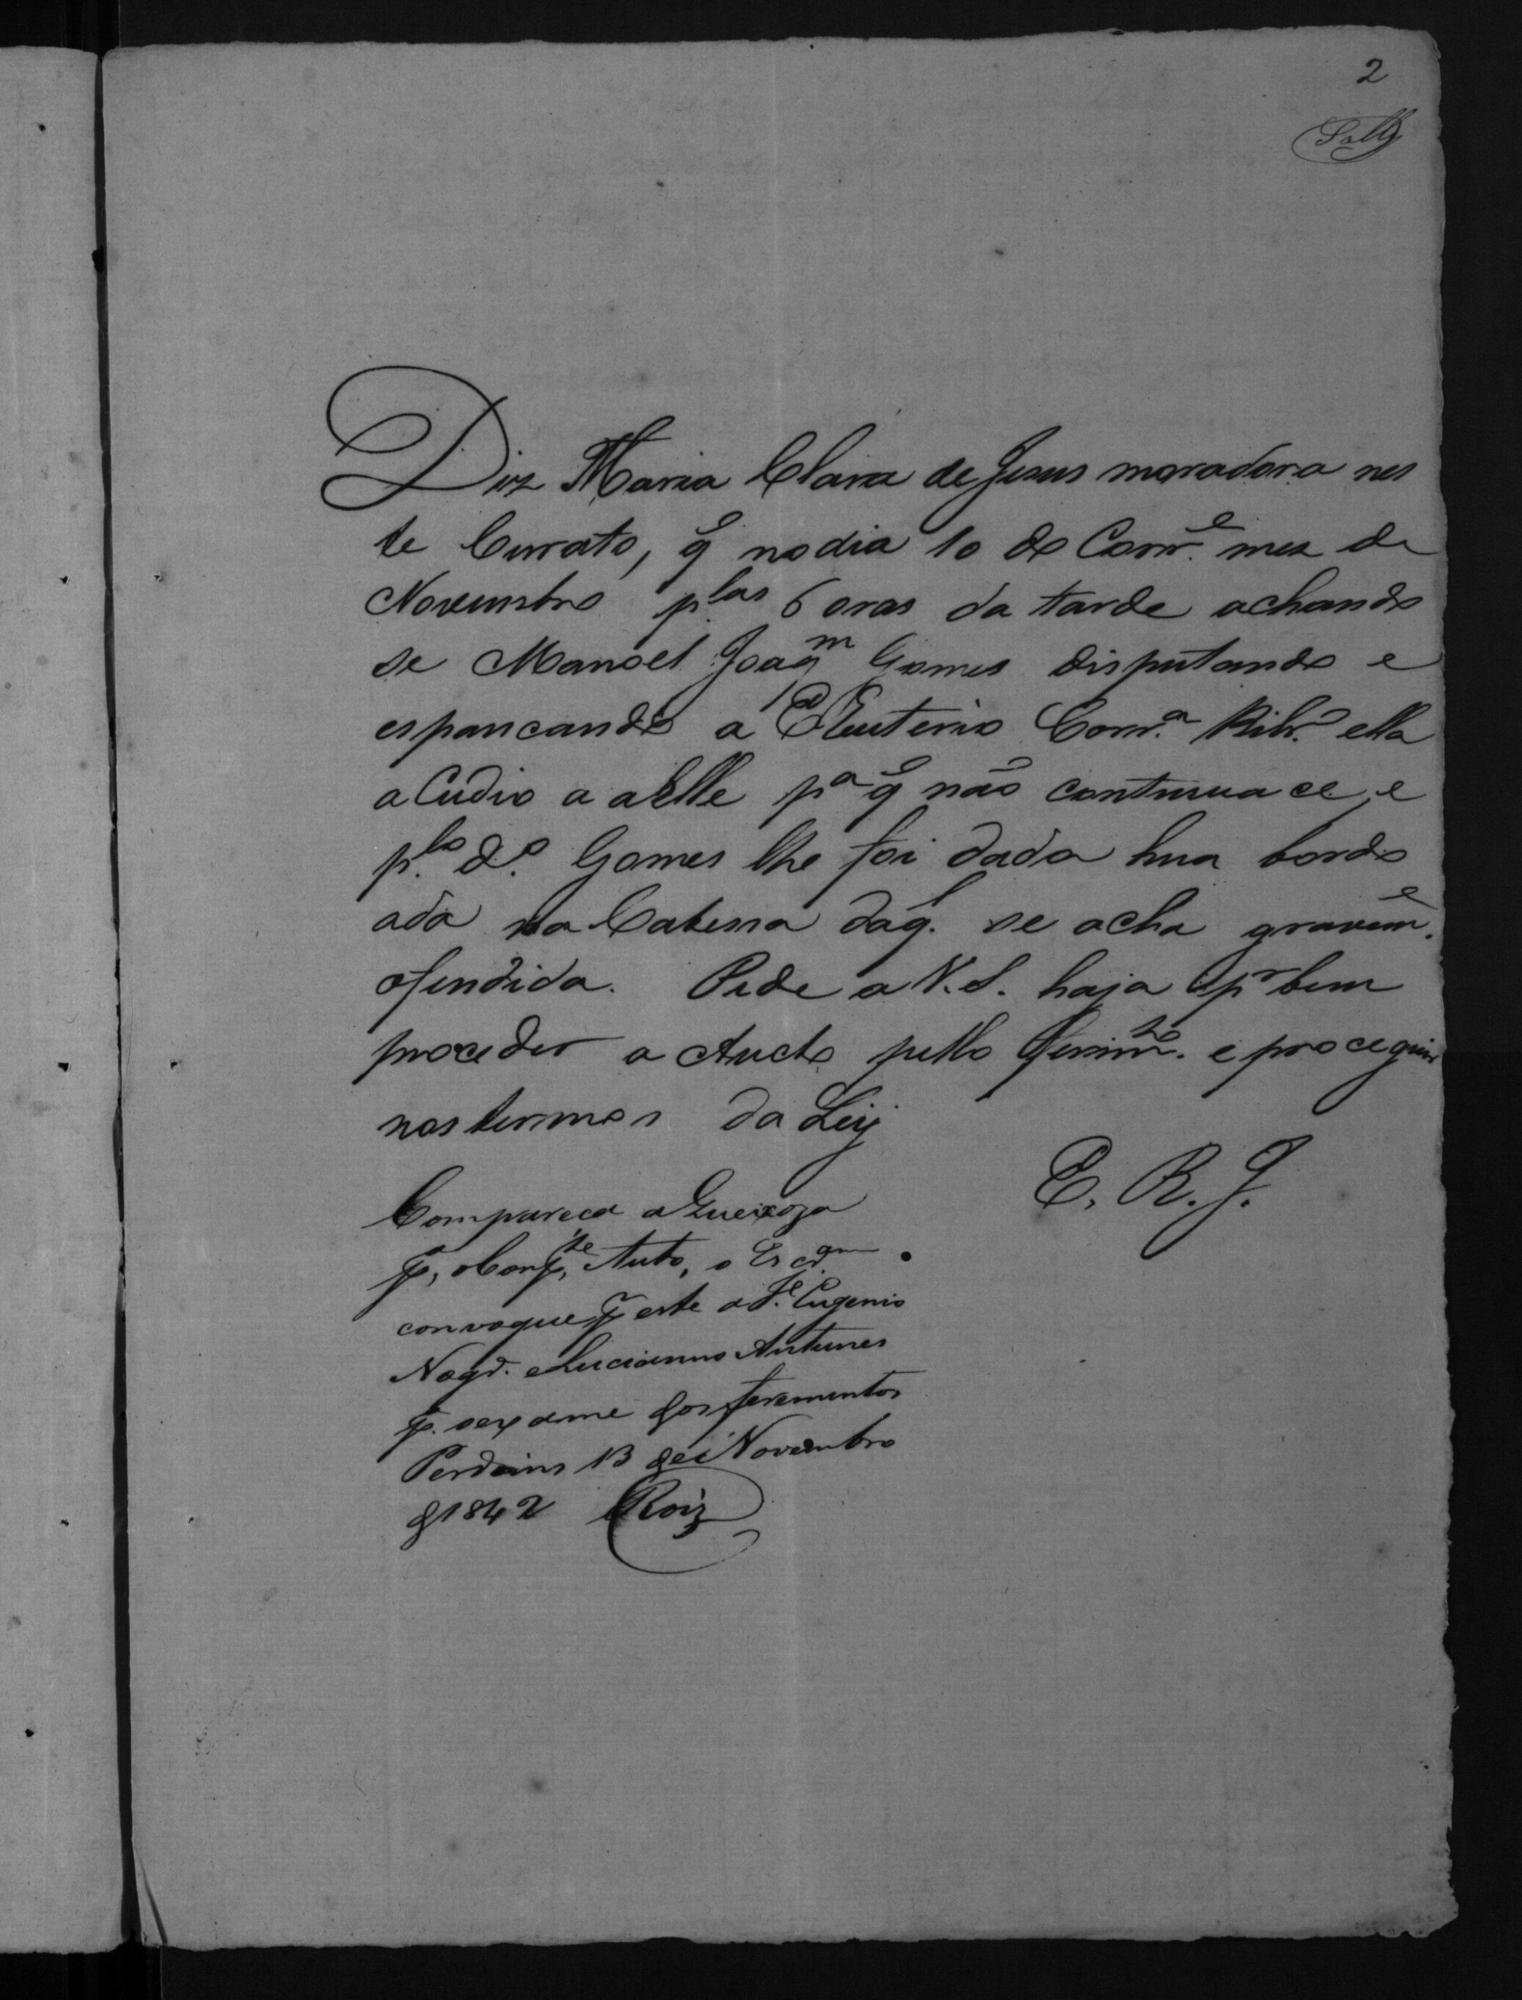 2
Diz Maria Clara de Jesus moradora nes
te Currato, q̃ no dia 10 do Corr.e mez de
Novembro p.las 6 oras da tarde achando
se Manoel Joaq.m Gomes disputando e
espancando a Eleuterio Corr.a Ribr.o ella
a Cudio a aElle p.a q̃ não continuace, e
p.lo d.o Gomes lhe foi dada hua bordo
ada na Cabessa daq.l se acha gravem.e
ofendida. Pede a V.S. haja p.r bem
proceder a Aucto pello ferim.to e proceguir
nos termos da Ley
E. R. J.
Compareca a Queixoza
p.a, o Comp.te Auto, o Escr.am
convoque p.a este a J.e Eugenio
Nogr.a e Lucianno Antunes
p.a o exame dos ferementos
Perdoins 13 de Novembro
d 1842 Roiz